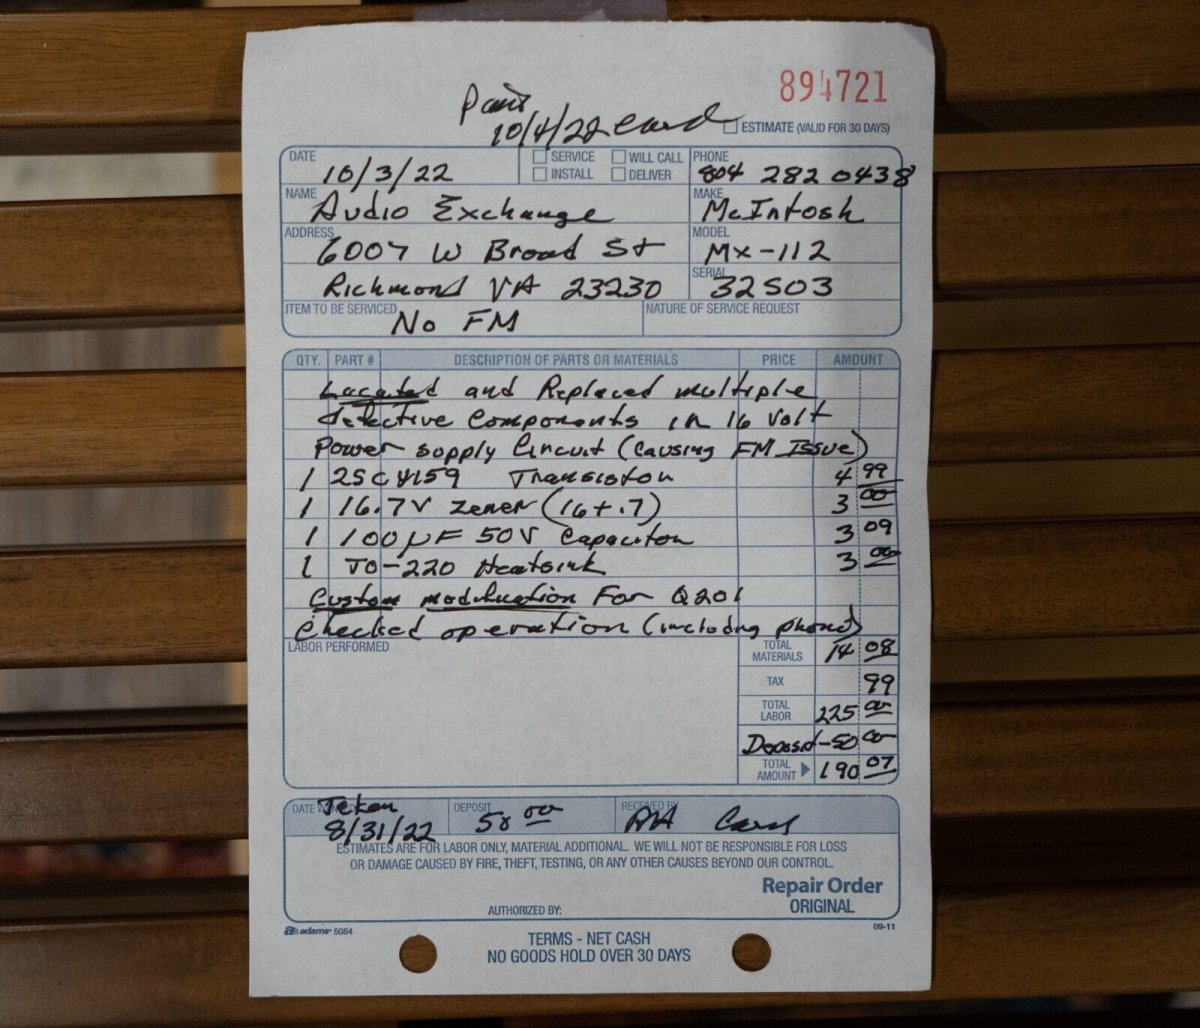 894721
Paid
10/4/22 Card
ESTIMATE (VALID FOR 30 DAYS)
DATE 10/3/22
SERVICE WILL CALL
INSTALL DELIVER
PHONE 804 282 0438
NAME Audio Exchange
MAKE McIntosh
ADDRESS 6007 W Broad St
MODEL MX-112
Richmond VA 23230
SERIAL 32S03
ITEM TO BE SERVICED No FM
NATURE OF SERVICE REQUEST
QTY. PART # DESCRIPTION OF PARTS OR MATERIALS PRICE AMOUNT
Located and Replaced multiple
defective Components in 16 Volt
Power supply Circuit (causing FM Issue)
1 2SC4159 Transistor 4 99
1 16.7V Zener (16+.7) 3 00
1 100µF 50V Capacitor 3 09
1 TO-220 Heatsink 3 00
Custom modification For Q201
Checked operation (including phono)
LABOR PERFORMED
TOTAL MATERIALS 14 08
TAX 99
TOTAL LABOR 225 00
Deposit -50 00
TOTAL AMOUNT 190 07
DATE Taken 8/31/22
DEPOSIT 50 00
RECEIVED BY Card
ESTIMATES ARE FOR LABOR ONLY, MATERIAL ADDITIONAL. WE WILL NOT BE RESPONSIBLE FOR LOSS
OR DAMAGE CAUSED BY FIRE, THEFT, TESTING, OR ANY OTHER CAUSES BEYOND OUR CONTROL.
Repair Order
ORIGINAL
AUTHORIZED BY:
adams 5084
09-11
TERMS - NET CASH
NO GOODS HOLD OVER 30 DAYS